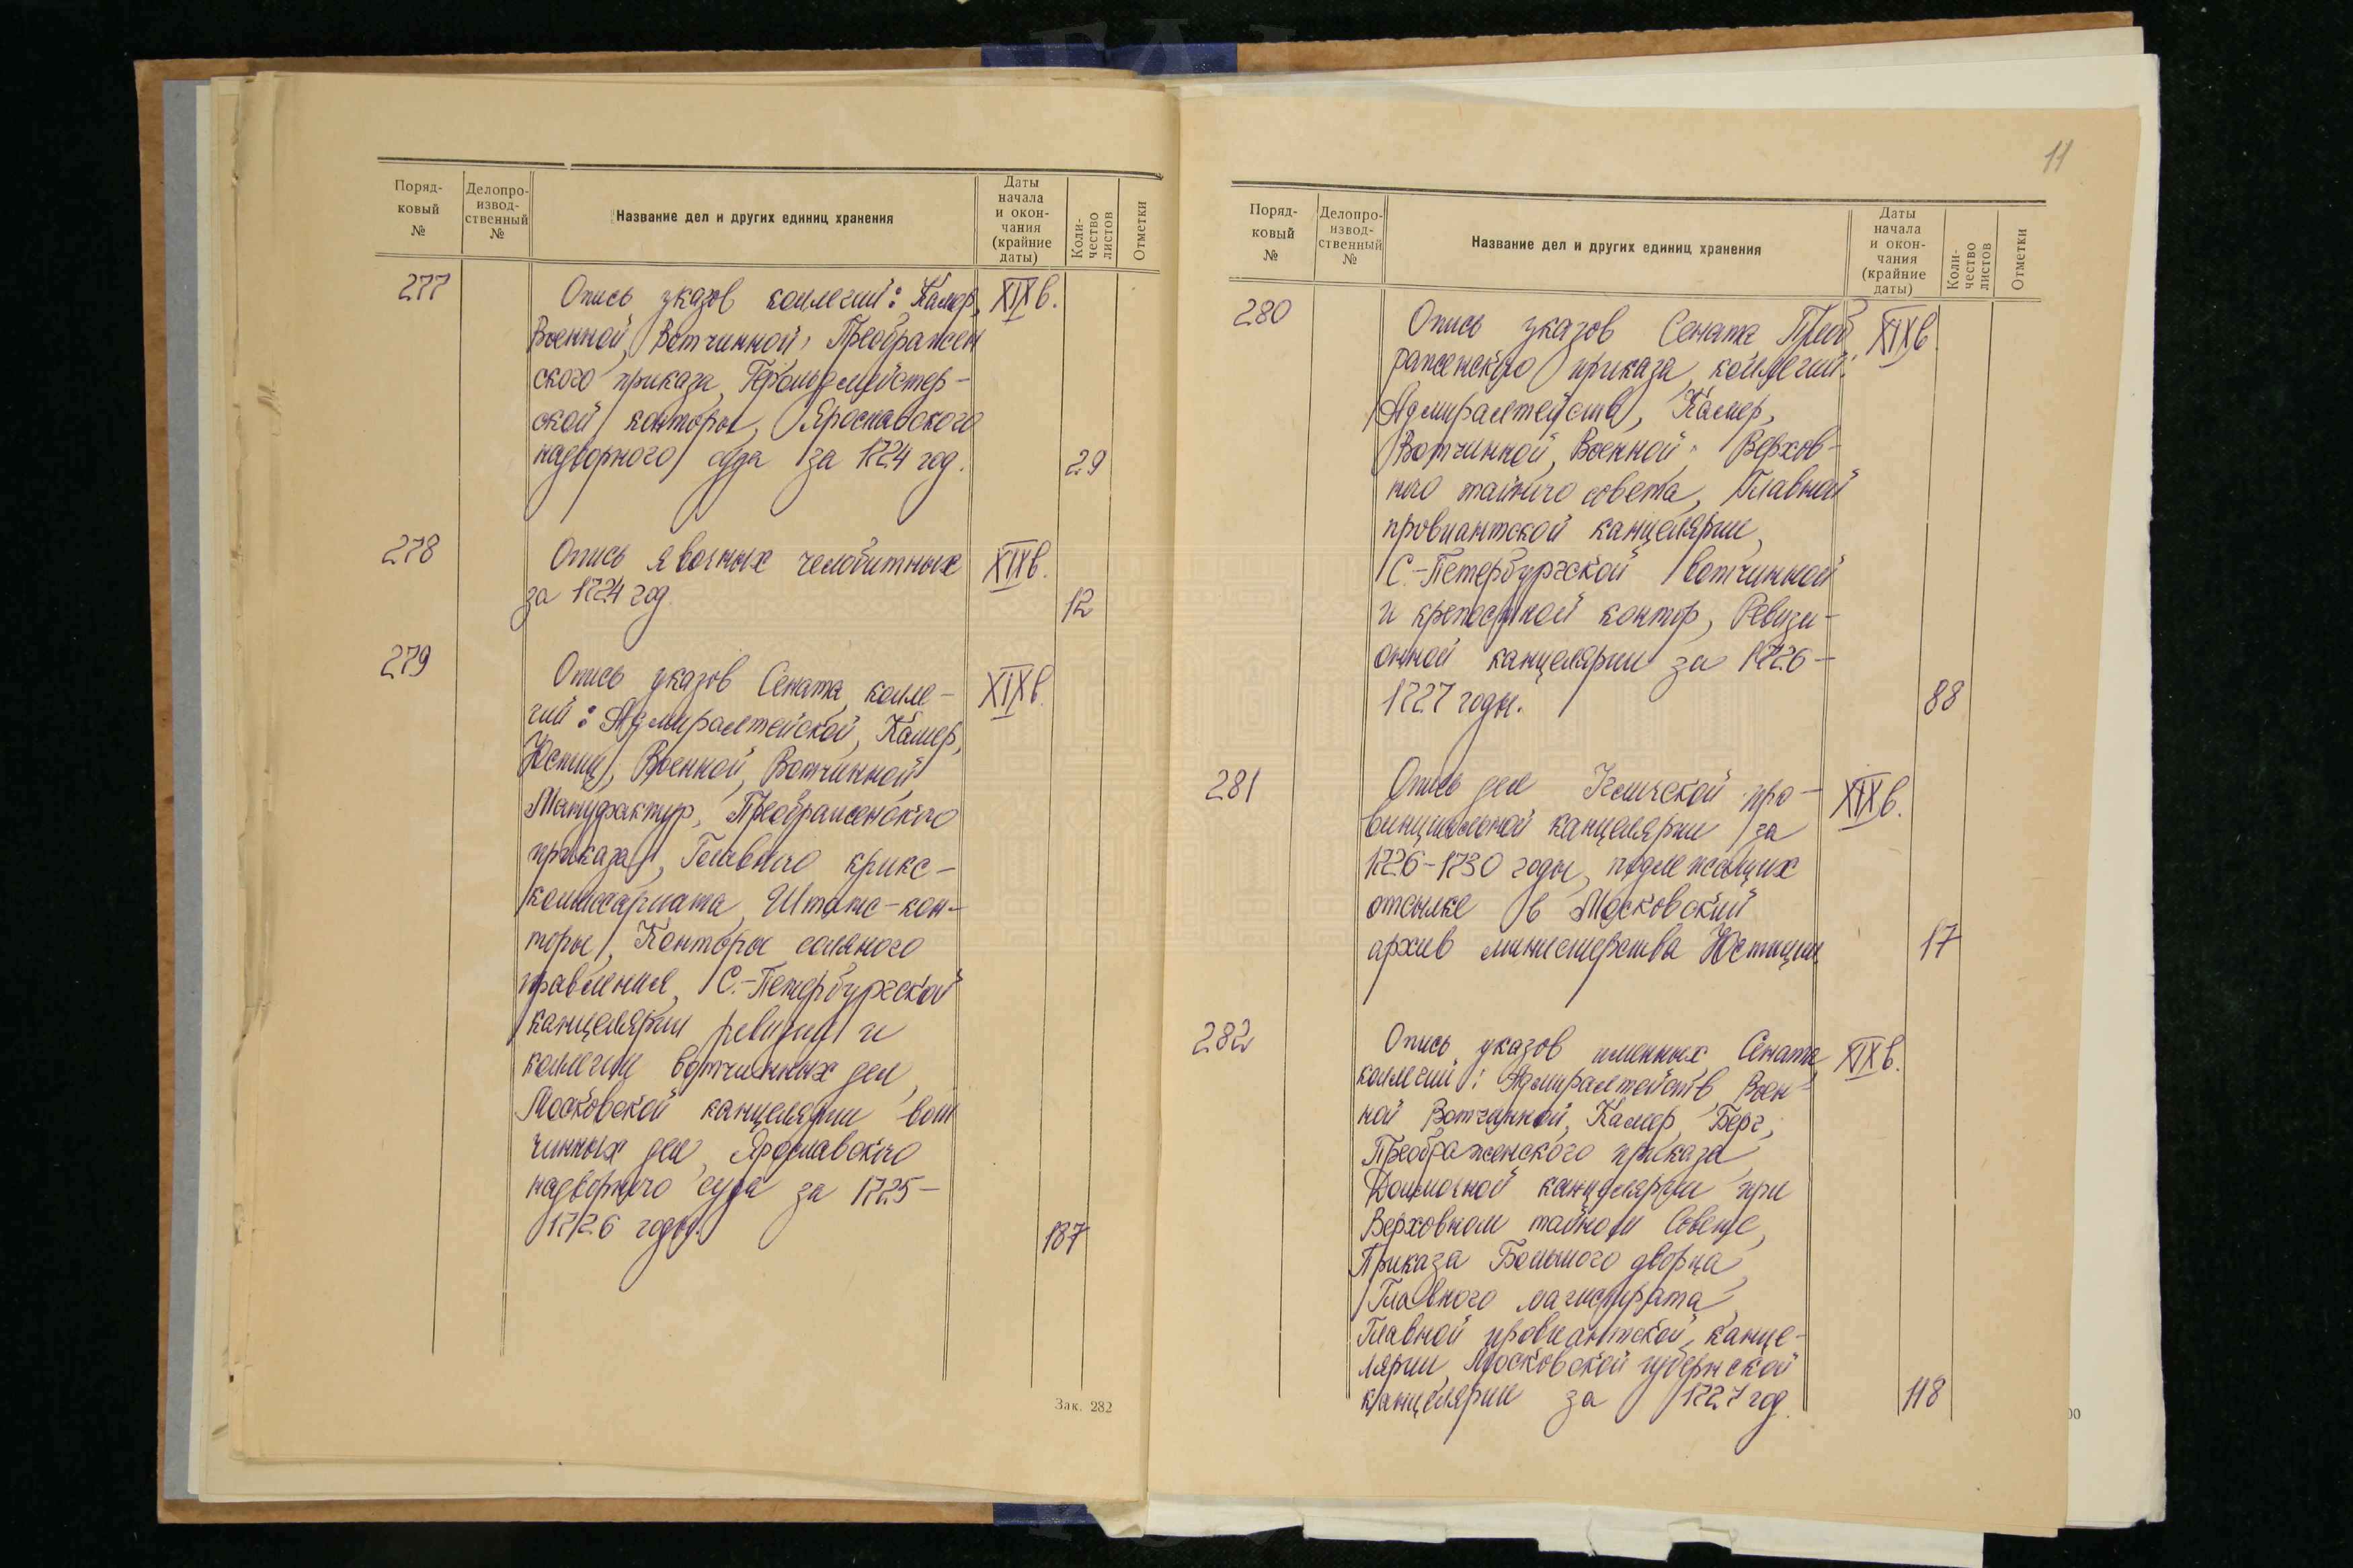 Поряд-
ковый
№
Делопро-
извод-
ственный
№
Название дел и других единиц хранения
Даты
начала
и окон-
чания
(крайние
даты)
Коли-
чество
листов
Отметки
277
Опись указов коллегий: Камер, XIX в.
Военной, Вотчинной, Преображен
ского приказа, Герольдмейстер-
ской конторы, Ярославского
надворного суда за 1724 год. 29
278
Опись явочных челобитных XIX в.
за 1724 год 12
279
Опись указов Сената, колле- XIX в.
гий: Адмиралтейской, Камер,
Юстиц, Военной, Вотчинной,
Мануфактур, Преображенского
приказа, Главного крикс-
комиссариата, Штатс-кон-
торы, Конторы соляного
правления, С.-Петербургской
канцелярии ревизии и
коллегии вотчинных дел,
Московской канцелярии вот
чинных дел, Ярославского
надворного суда за 1725-
1726 годы. 187
Зак. 282
11
Поряд-
ковый
№
Делопро-
извод-
ственный
№
Название дел и других единиц хранения
Даты
начала
и окон-
чания
(крайние
даты)
Коли-
чество
листов
Отметки
280
Опись указов Сената Прео XIX в
раженского приказа, коллегий:
Адмиралтейств, Камер,
Вотчинной, Военной, Верхов-
ного тайного совета, Главной
провиантской канцелярии,
С.-Петербургской вотчинной
и крепостной контор, Ревизи-
онной канцелярии за 1726-
1727 годы. 88
281
Опись дел Угличской про- XIX в.
винциальной канцелярии за
1726-1730 годы, подлежащих
отсылке в Московский
архив министерства Юстиции 17
282
Опись указов именных, Сената, XIX в.
коллегий: Адмиралтейств, Воен-
ной Вотчинной, Камер, Берг,
Преображенского приказа,
Доимочной канцелярии при
Верховном тайном Совете,
Приказа Большого дворца,
Главного магистрата,
Главной провиантской канце-
лярии, Московской губернской
канцелярии за 1727 год. 118
00